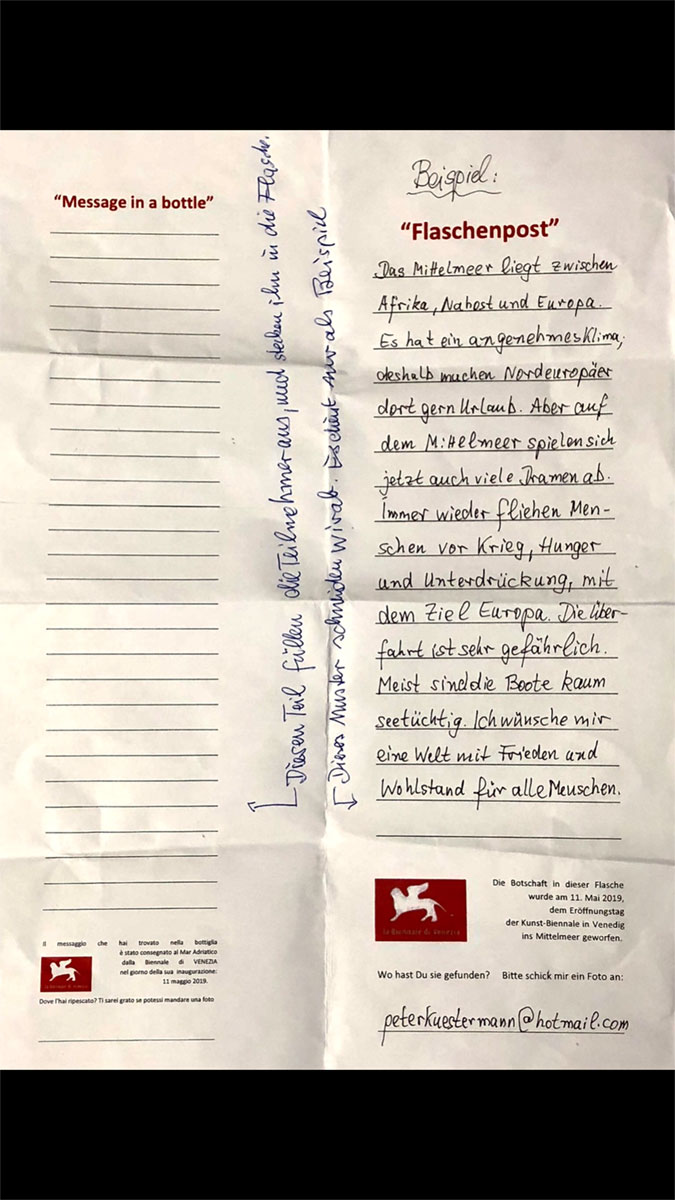 "Message in a bottle"
Il messaggio che hai trovato nella bottiglia
è stato consegnato al Mar Adriatico
dalla Biennale di VENEZIA
nel giorno della sua inaugurazione:
11 maggio 2019.
la Biennale di Venezia
Dove l'hai ripescato? Ti sarei grato se potessi mandare una foto
Diesen Teil füllen die Teilnehmer aus, und stecken ihn in die Flasche.
Dieses Muster schneiden wir ab. Es dient nur als Beispiel
Beispiel:
"Flaschenpost"
Das Mittelmeer liegt zwischen
Afrika, Nahost und Europa.
Es hat ein angenehmes Klima,
deshalb machen Nordeuropäer
dort gern Urlaub. Aber auf
dem Mittelmeer spielen sich
jetzt auch viele Dramen ab.
Immer wieder fliehen Men-
schen vor Krieg, Hunger
und Unterdrückung, mit
dem Ziel Europa. Die Über-
fahrt ist sehr gefährlich.
Meist sind die Boote kaum
seetüchtig. Ich wünsche mir
eine Welt mit Frieden und
Wohlstand für alle Menschen.
la Biennale di Venezia
Die Botschaft in dieser Flasche
wurde am 11. Mai 2019,
dem Eröffnungstag
der Kunst-Biennale in Venedig
ins Mittelmeer geworfen.
Wo hast Du sie gefunden? Bitte schick mir ein Foto an:
peterkuestermann@hotmail.com